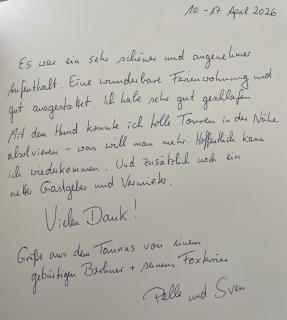 10. - 17. April 2026
Es war ein sehr schöner und angenehmer
Aufenthalt. Eine wunderbare Ferienwohnung und
gut ausgestattet. Ich habe sehr gut geschlafen.
Mit dem Hund konnte ich tolle Touren in der Nähe
absolvieren - was will man mehr. Hoffentlich kann
ich wiederkommen. Und zusätzlich noch ein
netter Gastgeber und Vermieter.
Vielen Dank!
Grüße aus dem Taunus von einem
gebürtigen Berliner + seinem Foxterrier
Pelle und Sven